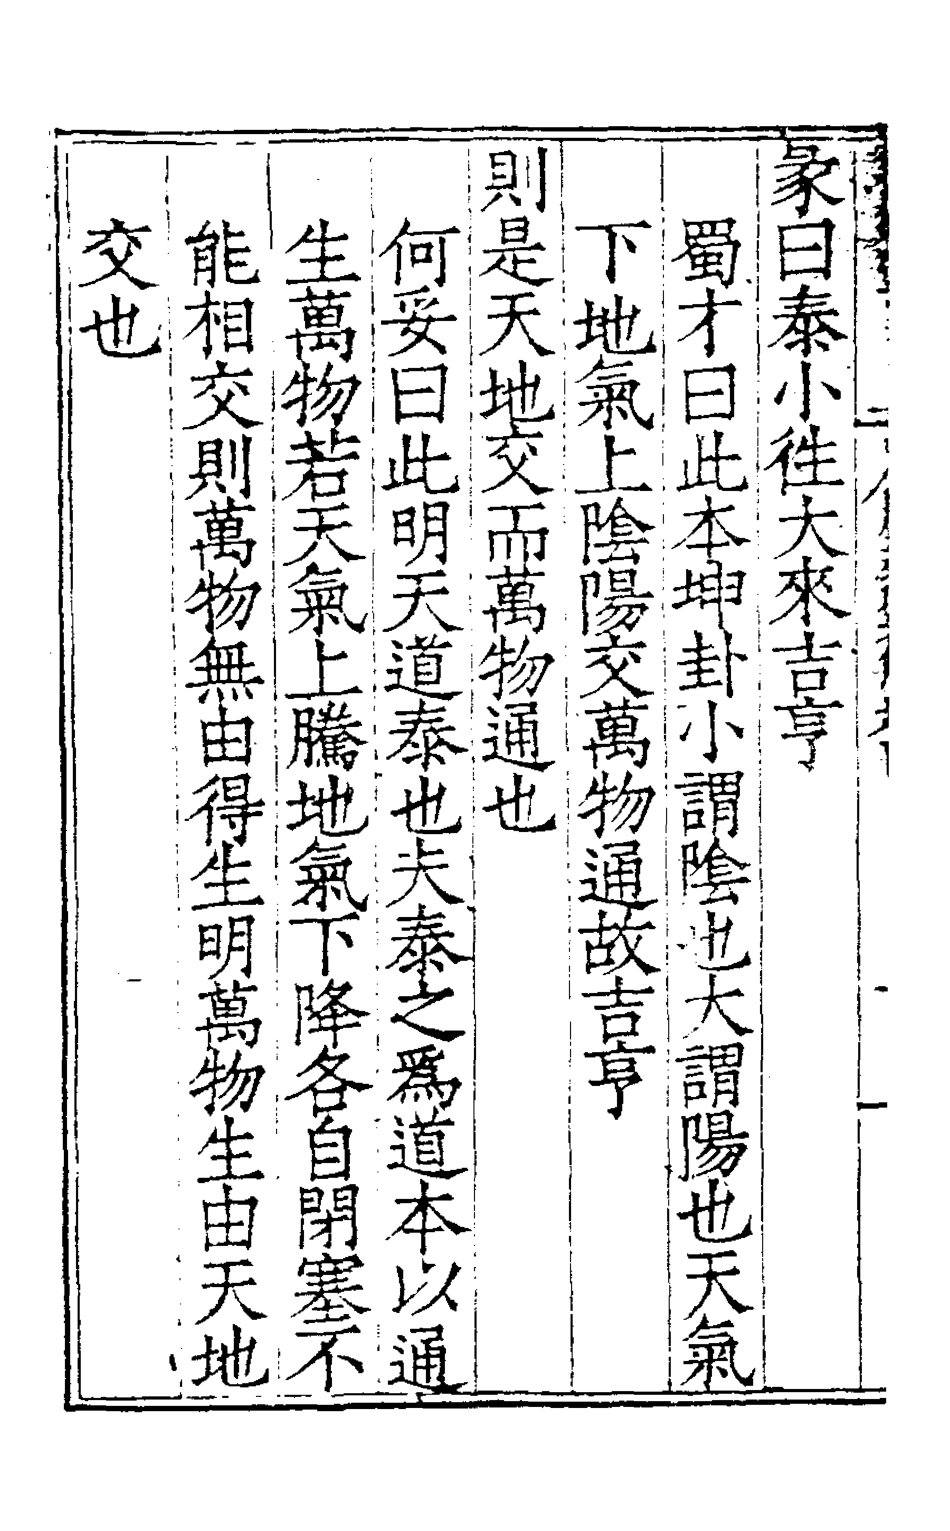 彖曰泰小徃大來吉亨
蜀才曰此本坤卦小謂陰也大謂陽也天氣
下地氣上陰陽交萬物通故吉亨
則是天地交而萬物通也
何妥曰此明天道泰也夫泰之爲道本以通
生萬物若天氣上騰地氣下降各自閉塞不
能相交則萬物無由得生明萬物生由天地
交也